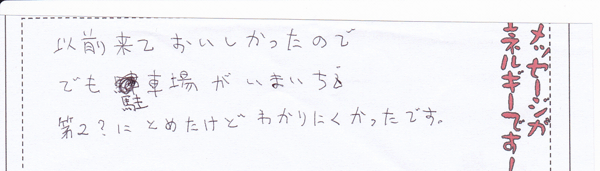 以前来ておいしかったので
でも駐車場がいまいち
第2?にとめたけどわかりにくかったです。
メッセージが
エネルギーです!